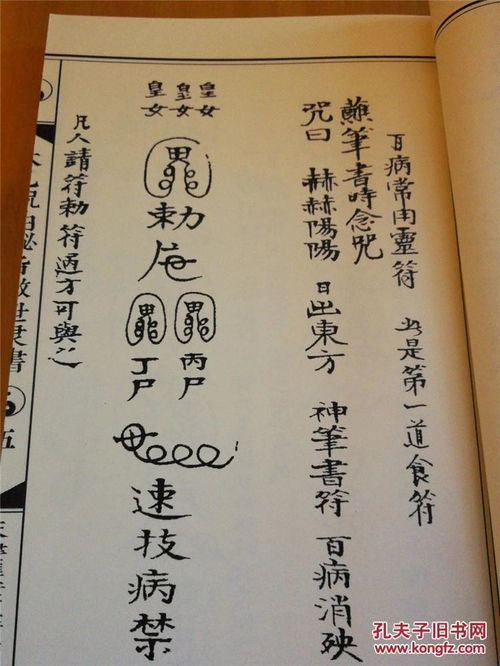 百病常用靈符 是第一道食符
蘸筆書時念咒
咒曰 赫赫陽陽 日出東方 神筆書符 百病消殃
皇女 皇女 皇女
勅
丙尸
丁尸
速技病禁
凡人請符勅符過方可與之
由秘旨救世 書 五
孔夫子旧书网
www.kongfz.com